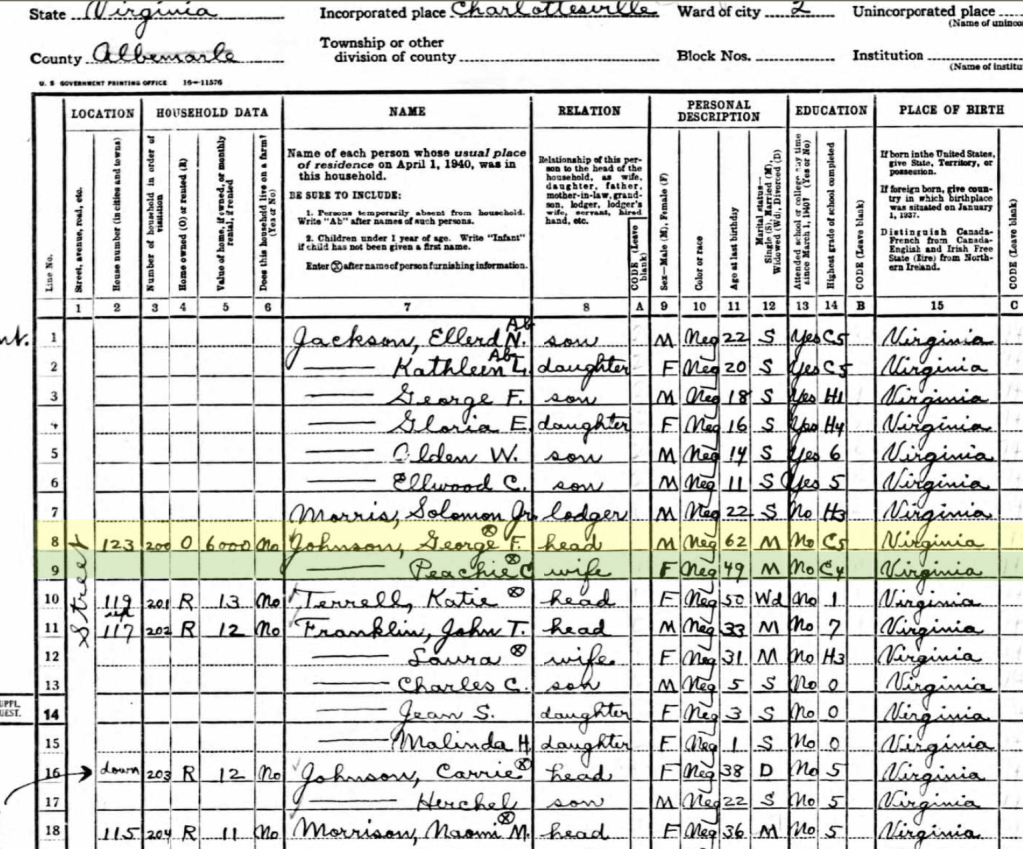 State Virginia Incorporated place Charlottesville Ward of city 2 Unincorporated place
(Name of uninco
County Albemarle Township or other division of county Block Nos. Institution
(Name of institu
U. S GOVERNMENT PRINTING OFFICE 16—11576
LOCATION HOUSEHOLD DATA NAME RELATION PERSONAL DESCRIPTION EDUCATION PLACE OF BIRTH
Line No.
Street, avenue, road, etc.
House number (in cities and towns)
Number of household in order of visitation
Home owned (O) or rented (R)
Value of home, if owned, or monthly rental, if rented
Does this household live on a farm? (Yes or No)
Name of each person whose usual place of residence on April 1, 1940, was in this household.
BE SURE TO INCLUDE:
1. Persons temporarily absent from household. Write "Ab" after names of such persons.
2. Children under 1 year of age. Write "Infant" if child has not been given a first name.
Enter ⓧ after name of person furnishing information.
Relationship of this person to the head of the household, as wife, daughter, father, mother-in-law, grandson, lodger, lodger's wife, servant, hired hand, etc.
CODE (Leave blank)
Sex—Male (M), Female (F)
Color or race
Age at last birthday
Marital status—Single (S), Married (M), Widowed (Wd), Divorced (D)
Attended school or college any time since March 1, 1940? (Yes or No)
Highest grade of school completed
CODE (Leave blank)
If born in the United States, give State, Territory, or possession.
If foreign born, give country in which birthplace was situated on January 1, 1937.
Distinguish Canada-French from Canada-English and Irish Free State (Eire) from Northern Ireland.
CODE (Leave blank)
1 2 3 4 5 6 7 8 A 9 10 11 12 13 14 B 15 C
1 Jackson, Ellerd N. Ab son M Neg 22 S Yes C5 Virginia
2 —— Kathleen L. Ab daughter F Neg 20 S Yes C5 Virginia
3 —— George F. son M Neg 18 S Yes H1 Virginia
4 —— Gloria E. daughter F Neg 16 S Yes H4 Virginia
5 —— Olden W. son M Neg 14 S Yes 6 Virginia
6 —— Ellwood C. son M Neg 11 S Yes 5 Virginia
7 Morris, Solomon Jr. lodger M Neg 22 S No H3 Virginia
Street
8 123 200 O 6000 No Johnson, George F. ⓧ head M Neg 62 M No C5 Virginia
9 —— Peachie C ⓧ wife F Neg 49 M No C4 Virginia
10 119 201 R 13 No Terrell, Katie ⓧ head F Neg 50 Wd No 1 Virginia
11 117 202 R 12 No Franklin, John T. head M Neg 33 M No 7 Virginia
12 —— Laura ⓧ wife F Neg 31 M No H3 Virginia
13 —— Charles C. son M Neg 5 S No 0 Virginia
SUPPL. QUEST.
14 —— Jean S. daughter F Neg 3 S No 0 Virginia
15 —— Malinda H. daughter F Neg 1 S No 0 Virginia
16 down 203 R 12 No Johnson, Carrie ⓧ head F Neg 38 D No 5 Virginia
17 —— Herchel son M Neg 22 S No 5 Virginia
18 115 204 R 11 No Morrison, Naomi M. ⓧ head F Neg 36 M No 5 Virginia